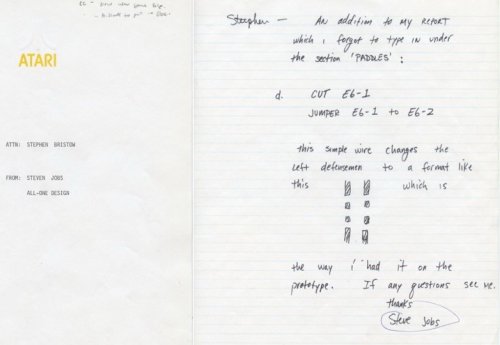 ATARI
ATTN: STEPHEN BRISTOW
FROM: STEVEN JOBS
ALL-ONE DESIGN
Stephen — AN addition to MY REPORT
which i forgot to type in under
the section 'PADDLES' :
d. CUT E6-1
JUMPER E6-1 to E6-2
this simple wire changes the
left defensemen to a format like
this which is
the way i had it on the
prototype. If any questions see me.
thanks
Steve Jobs